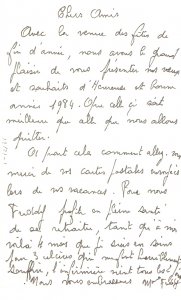 Chers Amis
Avec la venue des fêtes de
fin d'année, nous avons le grand
plaisir de vous présenter nos vœux
et souhaits d'Heureuse et bonne
année 1984. Que celle ci soit
meilleure que celle que nous allons
quitter.
A part cela comment allez, vous
merci de vos cartes postales
lors de vos vacances. Pour nous
profite en pleine santé
de sa retraite, tant qu'à moi
voilà 4 mois que je suis en soins
pour 3 ulcères qui me font
souffrir, l'infirmière vient tous les
Nous vous embrassons